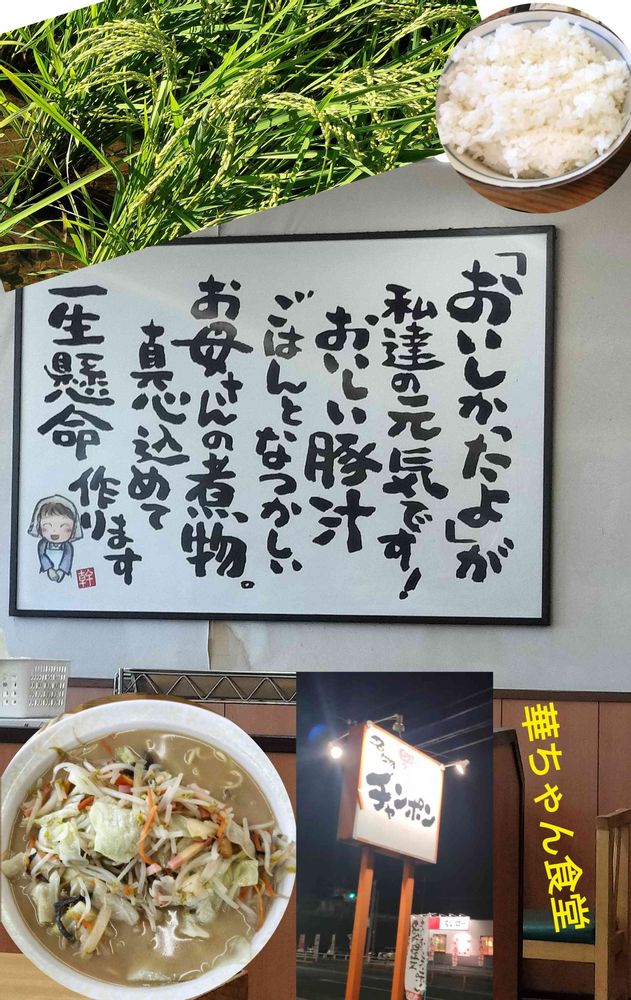 「おいしかったよ」が
私達の元気です!
おいしい豚汁
ごはんとなつかしい
お母さんの煮物。
真心込めて
一生懸命作ります
幹
チャンポン
華ちゃん食堂